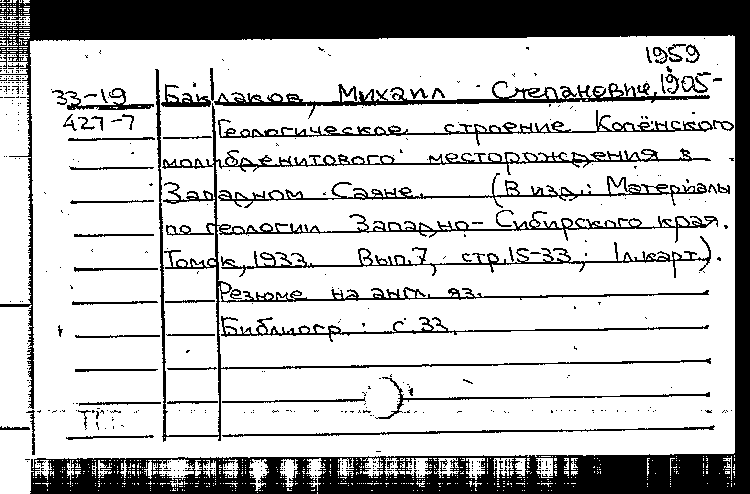 1959
33-19 Баклаков, Михаил Степанович, 1905-
427-7 Геологическое строение Копёнского
молибденитового месторождения в
Западном Саяне. (В изд.: Материалы
по геологии Западно-Сибирского края.
Томск, 1933. Вып. 7, стр. 15-33, 1 л. карт).
Резюме на англ. яз.
Библиогр.: с. 33.